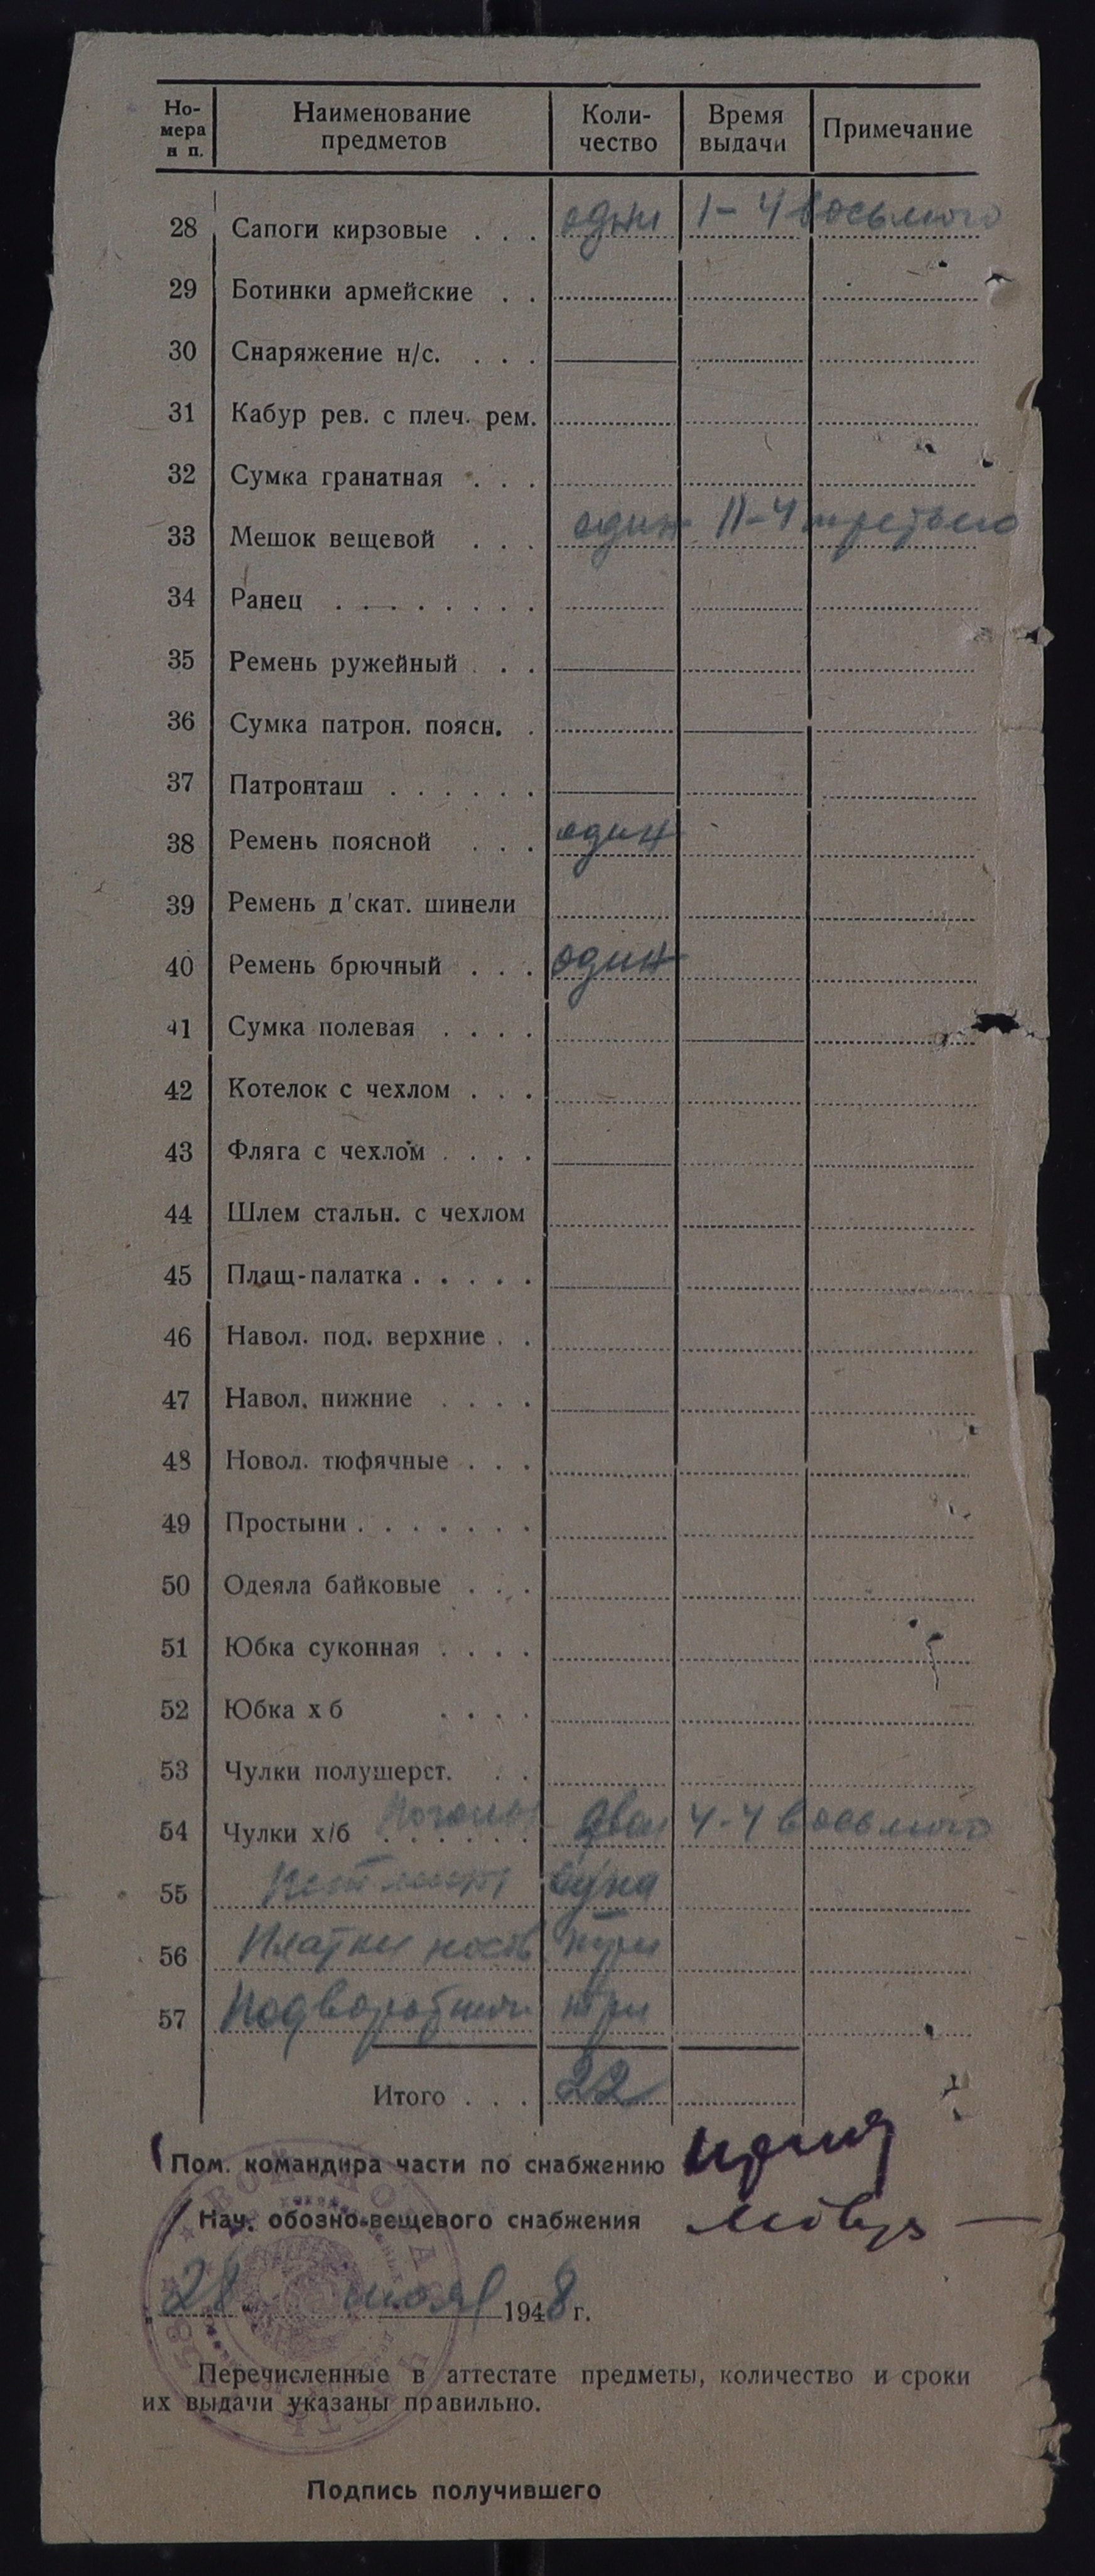 Но-
мера
и п.
Наименование
предметов
Коли-
чество
Время
выдачи
Примечание
28 Сапоги кирзовые . . . одни 1-4 восьмого
29 Ботинки армейские . .
30 Снаряжение н/с. . . .
31 Кабур рев. с плеч. рем.
32 Сумка гранатная . . .
33 Мешок вещевой . . . один 11-4 третьего
34 Ранец . . . . . . .
35 Ремень ружейный . . .
36 Сумка патрон. поясн. .
37 Патронташ . . . . . .
38 Ремень поясной . . . один
39 Ремень д'скат. шинели
40 Ремень брючный . . . один
41 Сумка полевая . . . .
42 Котелок с чехлом . . .
43 Фляга с чехлом . . . .
44 Шлем стальн. с чехлом
45 Плащ-палатка . . . . .
46 Навол. под. верхние . .
47 Навол. нижние . . . .
48 Новол. тюфячные . . .
49 Простыни . . . . . . .
50 Одеяла байковые . . .
51 Юбка суконная . . . .
52 Юбка х б . . . .
53 Чулки полушерст. . .
54 Чулки х/б . . . . . . двои 4-4 восьмого
55 одна
56 Платки носов три
57 Подворотнич три
Итого . . . 22
Пом. командира части по снабжению
Нач. обозно-вещевого снабжения
„28“ июля 1948 г.
Перечисленные в аттестате предметы, количество и сроки
их выдачи указаны правильно.
Подпись получившего